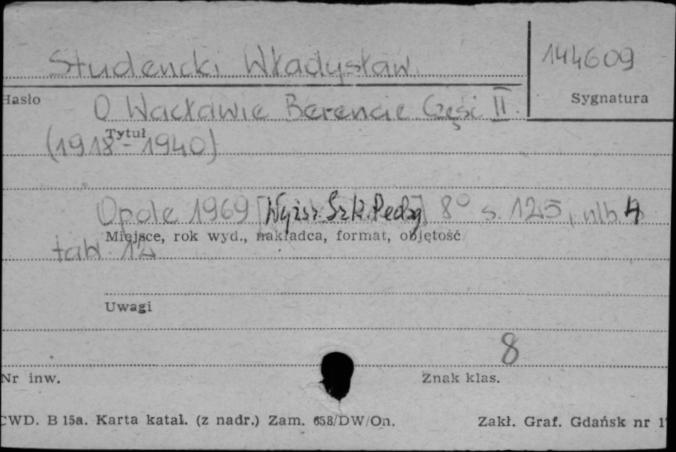 Studencki Władysław 144609
Hasło Sygnatura
O Wacławie Berencie Część II
Tytuł
(1918-1940)
Opole 1969 [Wyższ. Szk. Pedag] 8° s. 125, nlb 4
Miejsce, rok wyd., nakładca, format, objętość
tabl. 12
Uwagi
8
Nr inw. Znak klas.
CWD. B 15a. Karta katal. (z nadr.) Zam. 658/DW/On. Zakł. Graf. Gdańsk nr 1